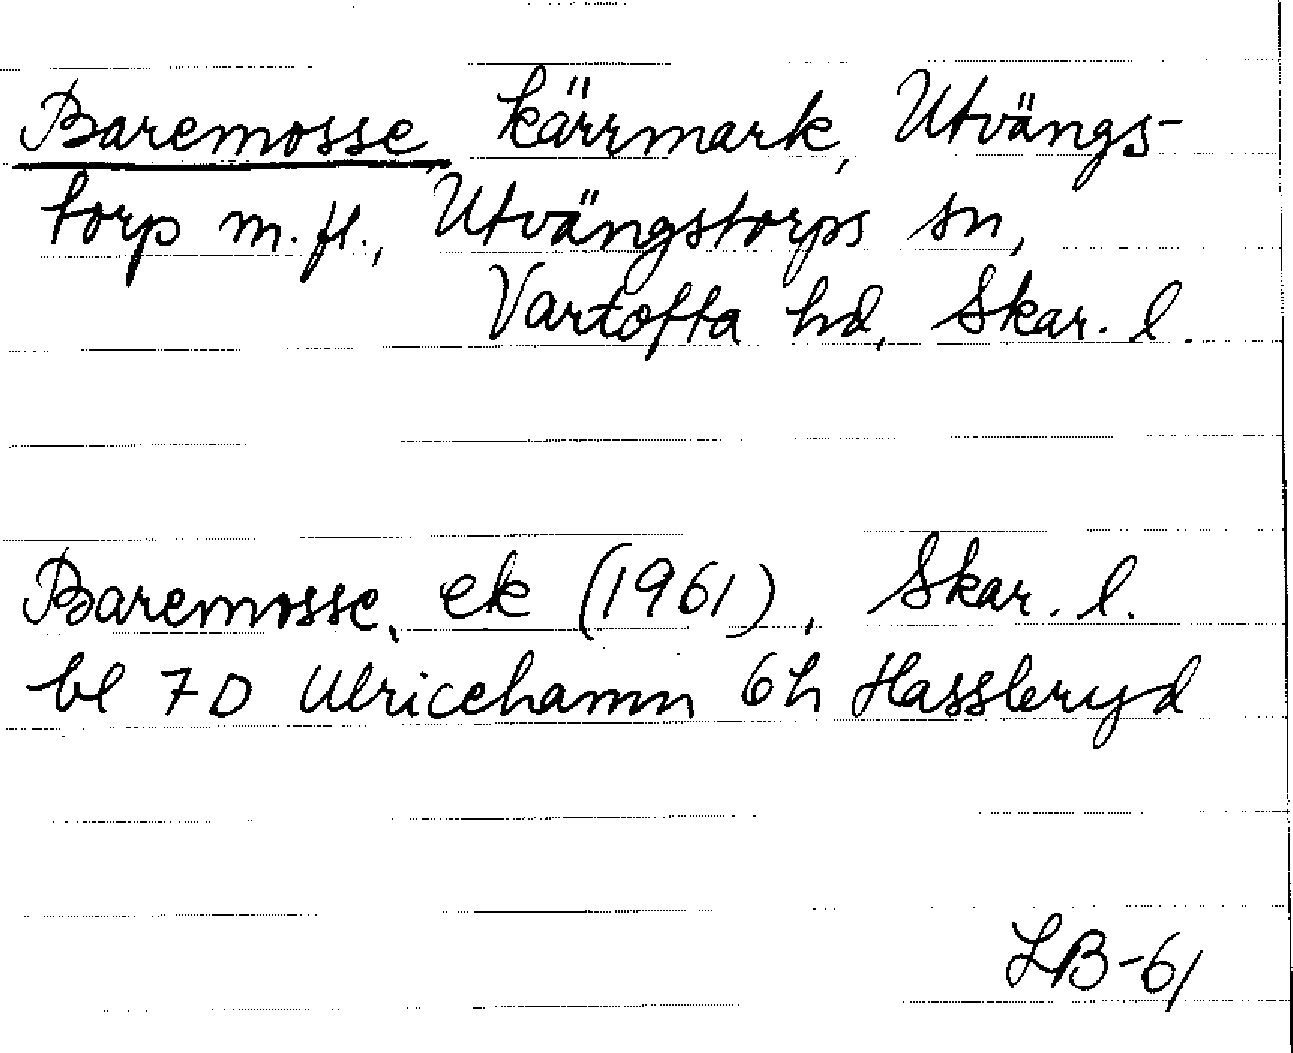 Baremosse kärrmark, Utvängs-
torp m.fl., Utvängstorps sn,
Vartofta hd, Skar. l.
Baremosse, ek (1961), Skar. l.
bl 7D Ulricehamn 6h Hassleryd
LB-61